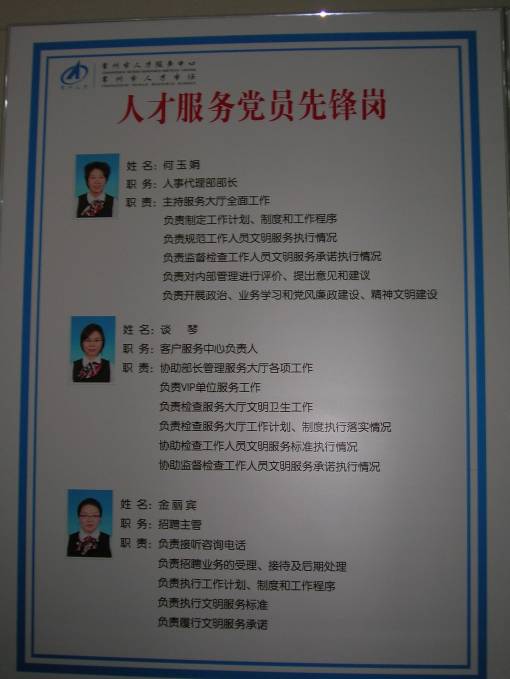 常州市人才服务中心
常州市人才市场
人才服务党员先锋岗
姓 名：何玉娟
职 务：人事代理部部长
职 责：主持服务大厅全面工作
负责制定工作计划、制度和工作程序
负责规范工作人员文明服务执行情况
负责监督检查工作人员文明服务承诺执行情况
负责对内部管理进行评价、提出意见和建议
负责开展政治、业务学习和党风廉政建设、精神文明建设
姓 名：谈 琴
职 务：客户服务中心负责人
职 责：协助部长管理服务大厅各项工作
负责VIP单位服务工作
负责检查服务大厅文明卫生工作
负责检查服务大厅工作计划、制度执行落实情况
协助检查工作人员文明服务标准执行情况
协助监督检查工作人员文明服务承诺执行情况
姓 名：金丽宾
职 务：招聘主管
职 责：负责接听咨询电话
负责招聘业务的受理、接待及后期处理
负责执行工作计划、制度和工作程序
负责执行文明服务标准
负责履行文明服务承诺